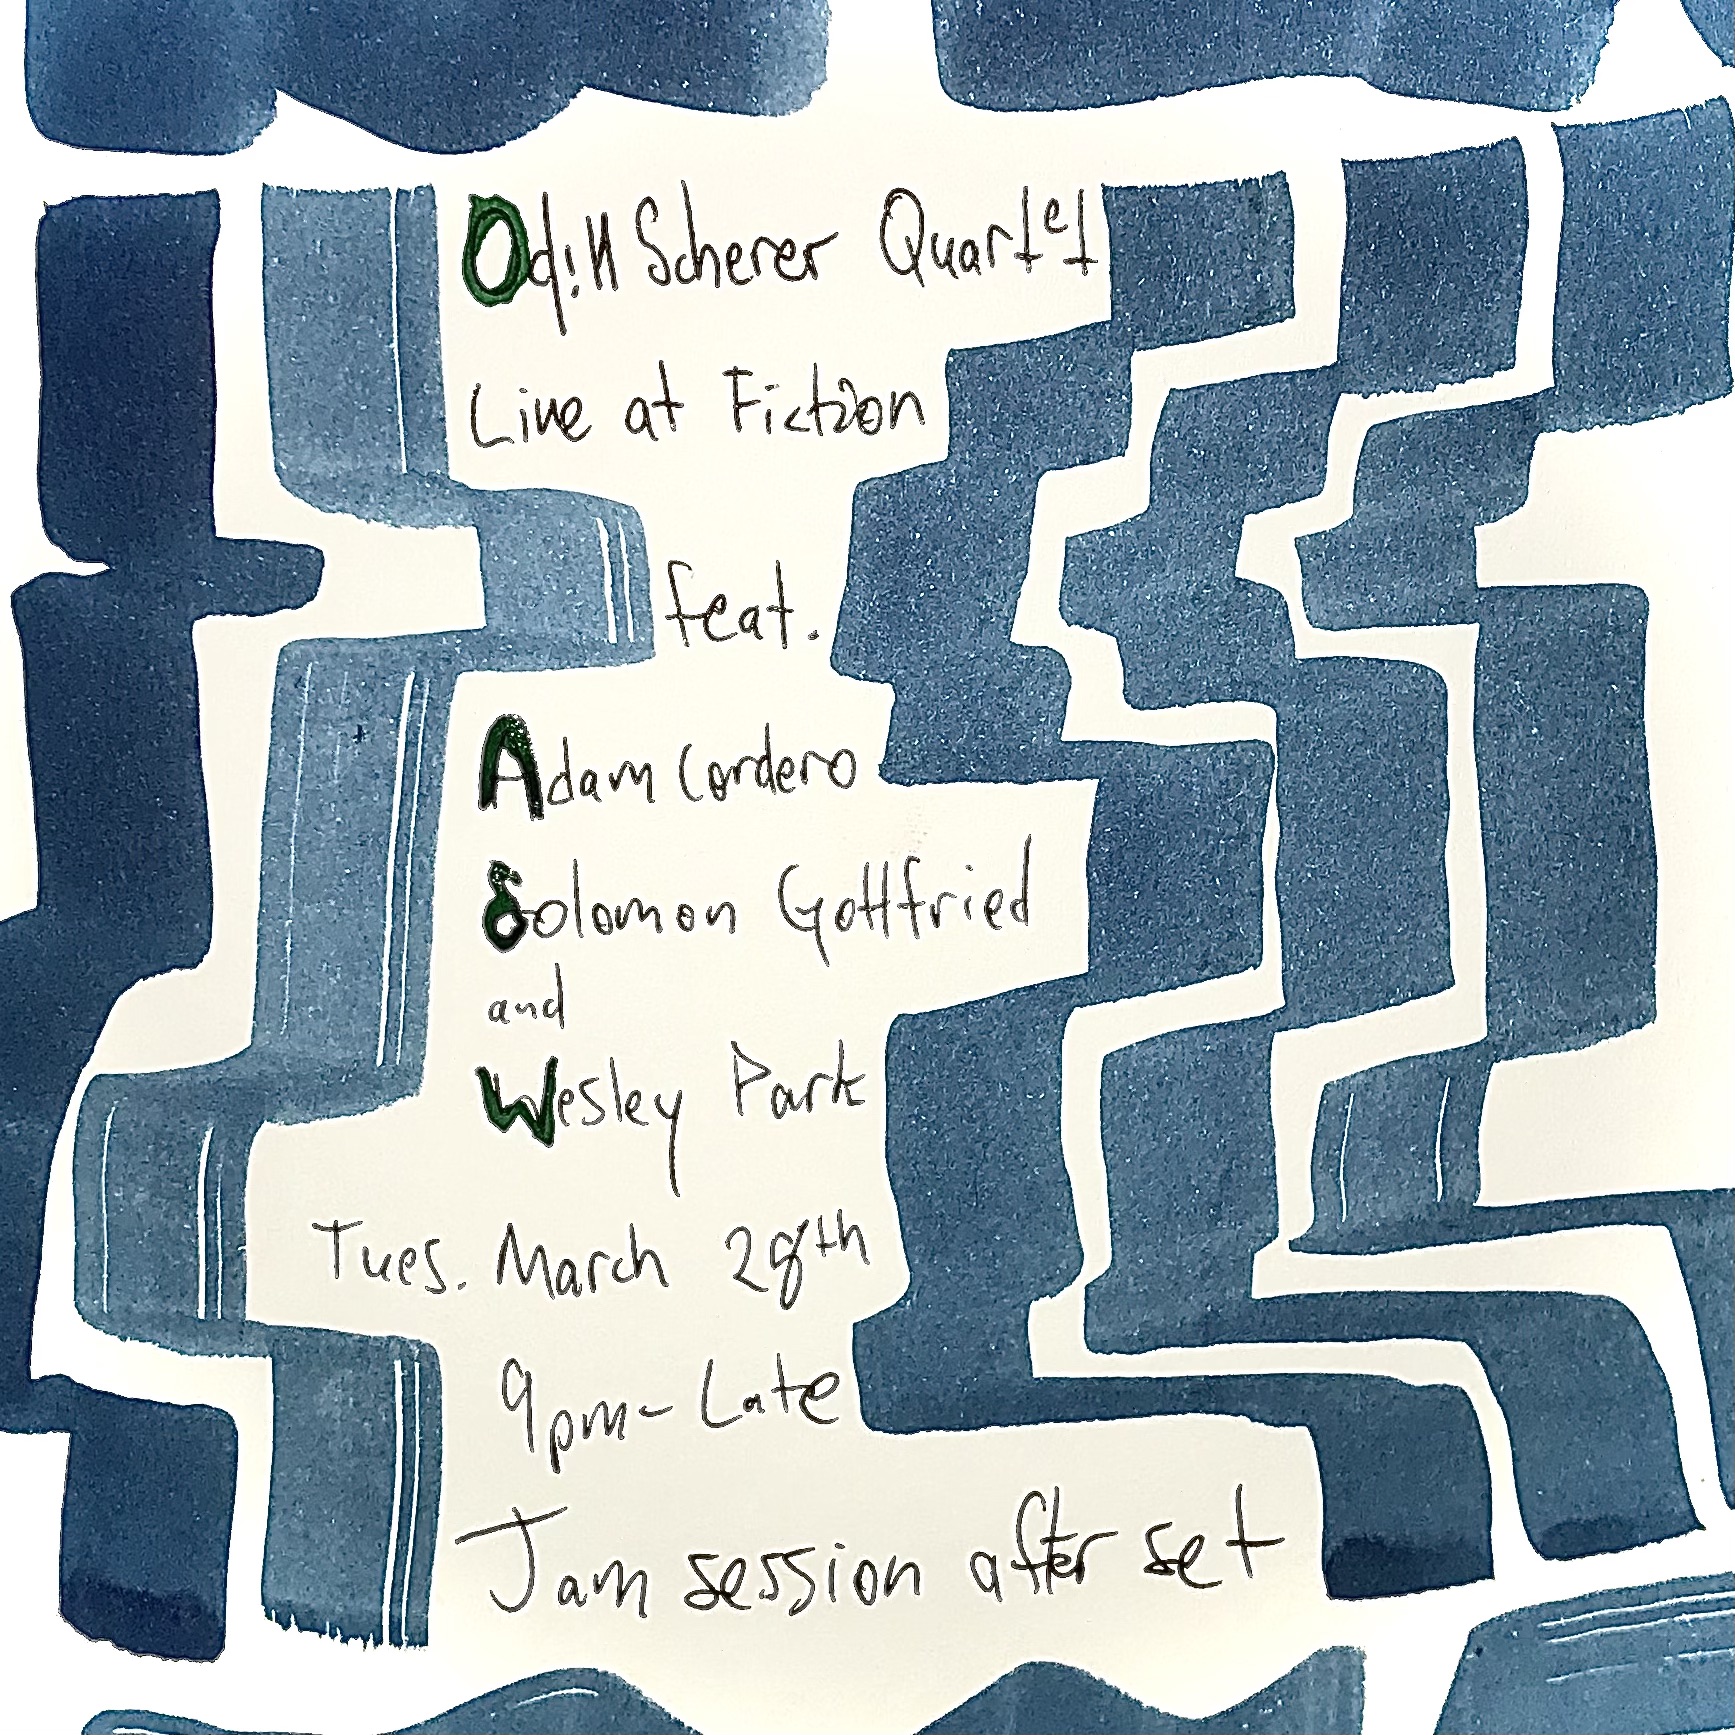 Odin Scherer Quartet
Live at Fiction
feat.
Adam Cordero
Solomon Gottfried
and
Wesley Park
Tues. March 28th
9pm - Late
Jam session after set